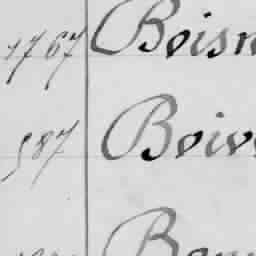 1767 Boisn
587 Boiv